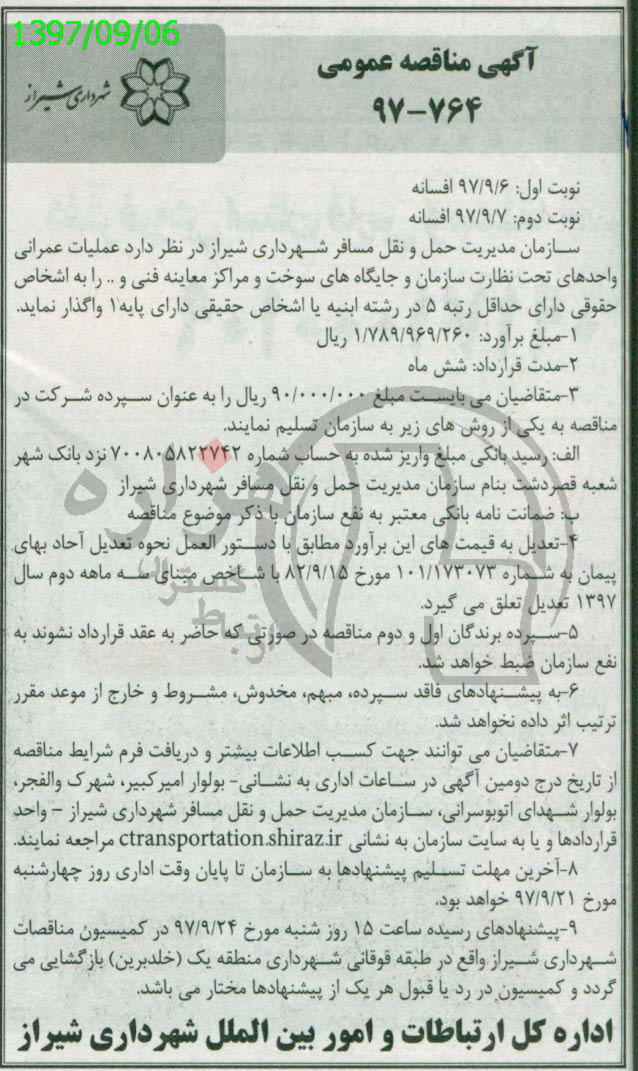 1397/09/06
آگهی مناقصه عمومی
۹۷-۷۶۴
شهرداری شیراز
نوبت اول: ۹۷/۹/۶ افسانه
نوبت دوم: ۹۷/۹/۷ افسانه
سازمان مدیریت حمل و نقل مسافر شهرداری شیراز در نظر دارد عملیات عمرانی
واحدهای تحت نظارت سازمان و جایگاه های سوخت و مراکز معاینه فنی و .. را به اشخاص
حقوقی دارای حداقل رتبه ۵ در رشته ابنیه یا اشخاص حقیقی دارای پایه۱ واگذار نماید.
۱-مبلغ برآورد: ۱/۷۸۹/۹۶۹/۲۶۰ ریال
۲-مدت قرارداد: شش ماه
۳-متقاضیان می بایست مبلغ ۹۰/۰۰۰/۰۰۰ ریال را به عنوان سپرده شرکت در
مناقصه به یکی از روش های زیر به سازمان تسلیم نمایند.
الف: رسید بانکی مبلغ واریز شده به حساب شماره ۷۰۰۸۰۵۸۲۲۷۴۲ نزد بانک شهر
شعبه قصردشت بنام سازمان مدیریت حمل و نقل مسافر شهرداری شیراز
ب: ضمانت نامه بانکی معتبر به نفع سازمان با ذکر موضوع مناقصه
۴-تعدیل به قیمت های این برآورد مطابق با دستور العمل نحوه تعدیل آحاد بهای
پیمان به شماره ۱۰۱/۱۷۳۰۷۳ مورخ ۸۲/۹/۱۵ با شاخص مبنای سه ماهه دوم سال
۱۳۹۷ تعدیل تعلق می گیرد.
۵-سپرده برندگان اول و دوم مناقصه در صورتی که حاضر به عقد قرارداد نشوند به
نفع سازمان ضبط خواهد شد.
۶-به پیشنهادهای فاقد سپرده، مبهم، مخدوش، مشروط و خارج از موعد مقرر
ترتیب اثر داده نخواهد شد.
۷-متقاضیان می توانند جهت کسب اطلاعات بیشتر و دریافت فرم شرایط مناقصه
از تاریخ درج دومین آگهی در ساعات اداری به نشانی- بولوار امیرکبیر، شهرک والفجر،
بولوار شهدای اتوبوسرانی، سازمان مدیریت حمل و نقل مسافر شهرداری شیراز – واحد
قراردادها و یا به سایت سازمان به نشانی ctransportation.shiraz.ir مراجعه نمایند.
۸-آخرین مهلت تسلیم پیشنهادها به سازمان تا پایان وقت اداری روز چهارشنبه
مورخ ۹۷/۹/۲۱ خواهد بود.
۹-پیشنهادهای رسیده ساعت ۱۵ روز شنبه مورخ ۹۷/۹/۲۴ در کمیسیون مناقصات
شهرداری شیراز واقع در طبقه فوقانی شهرداری منطقه یک (خلدبرین) بازگشایی می
گردد و کمیسیون در رد یا قبول هر یک از پیشنهادها مختار می باشد.
اداره کل ارتباطات و امور بین الملل شهرداری شیراز
هزاره